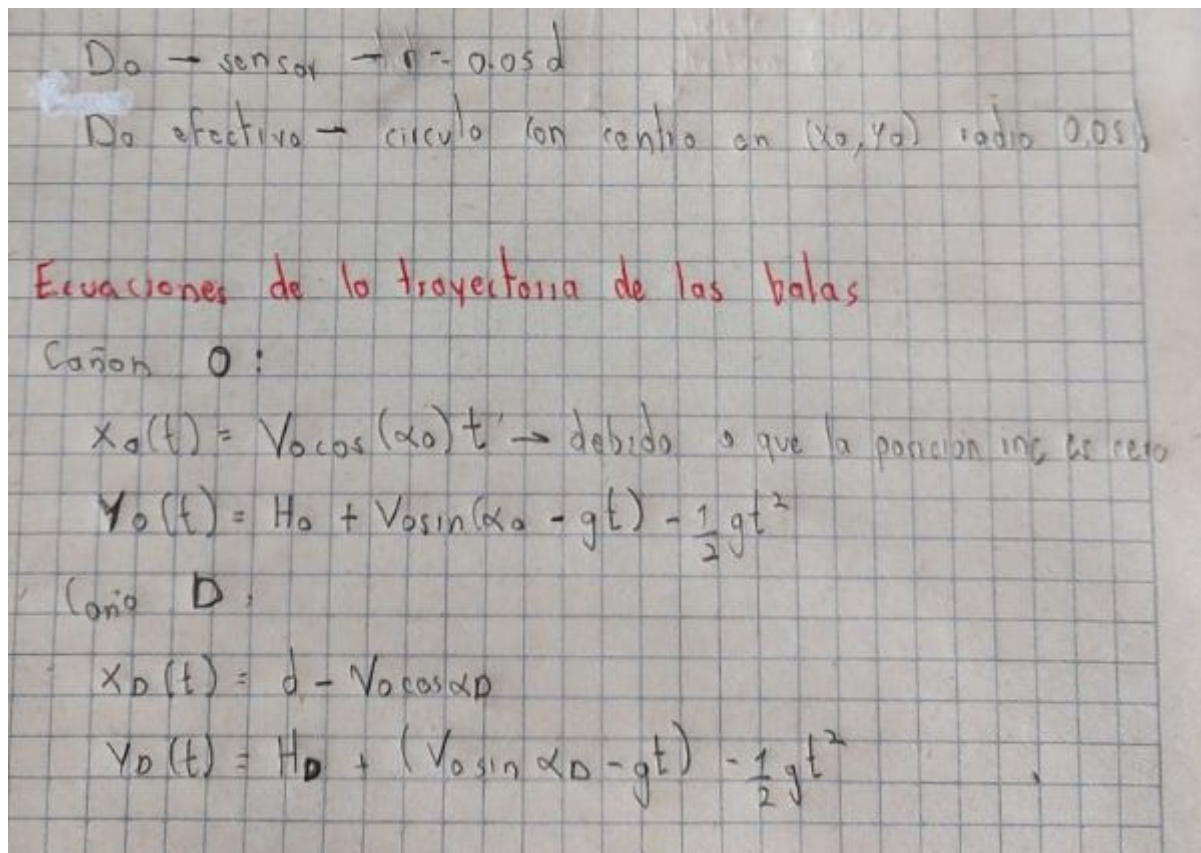 Do → sensor → r = 0.05 d
Do efectivo → circulo con centro en (xo, yo) radio 0.05
Ecuaciones de la trayectoria de las balas
Cañon O:
xo(t) = Vo cos (αo) t → debido a que la posición inc es cero
Yo(t) = Ho + Vo sin(αo - gt) - 1/2 gt²
D:
xD(t) = d - Vo cos αD
YD(t) = HD + (Vo sin αD - gt) - 1/2 gt²